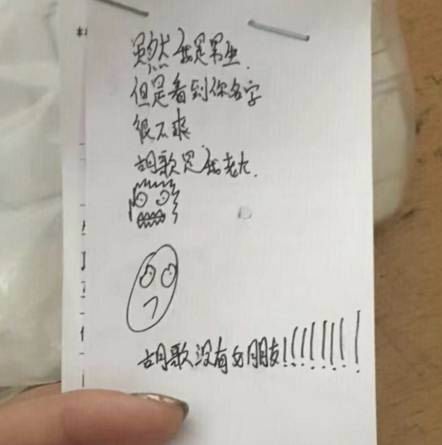 虽然我是男生.
但是看到你名字
很不爽
胡歌是我老大.
胡歌没有女朋友!!!!!!!!!